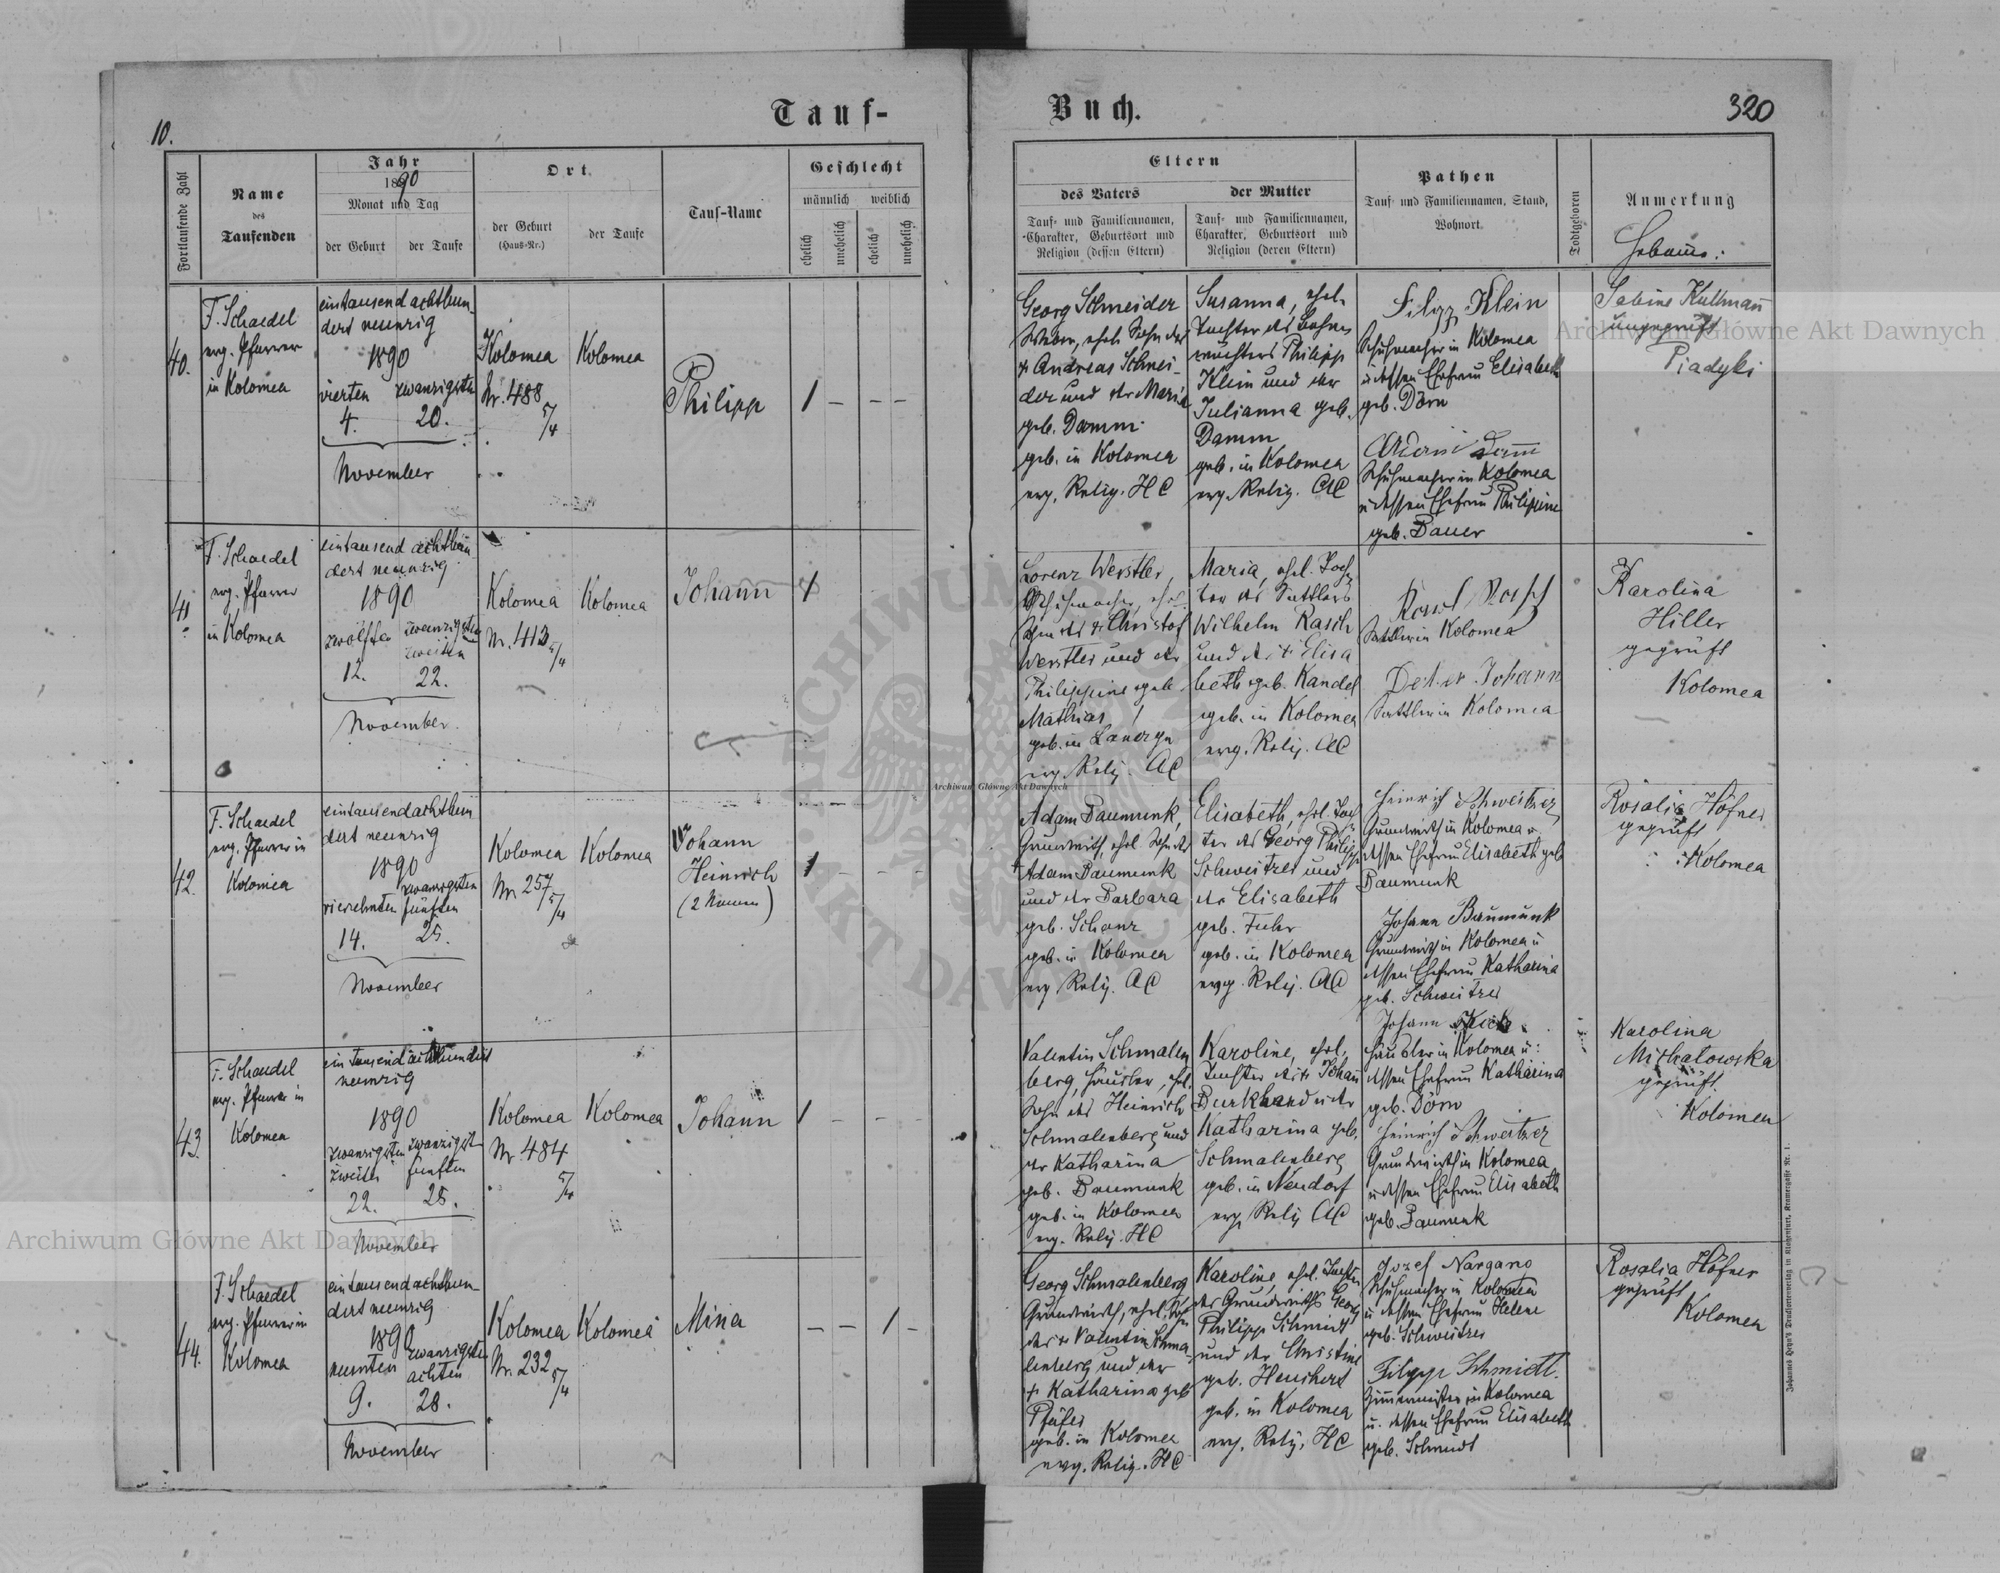 Tauf-
Buch.
10.
320
Fortlaufende Zahl
Name
des
Taufenden
Jahr
1890
Monat und Tag
der Geburt
der Taufe
Ort
der Geburt
(Haus-Nr.)
der Taufe
Tauf-Name
Geschlecht
männlich
weiblich
ehelich
unehelich
ehelich
unehelich
Eltern
des Vaters
Tauf- und Familiennamen,
Charakter, Geburtsort und
Religion (dessen Eltern)
der Mutter
Tauf- und Familiennamen,
Charakter, Geburtsort und
Religion (deren Eltern)
Pathen
Tauf- und Familiennamen, Stand,
Wohnort.
Todtgeboren
Anmerkung
40.
F. Schaedel
evg. Pfarrer
in Kolomea
eintausend achthun-
dert neunzig
1890
vierten
zwanzigsten
4.
20.
November
Kolomea
Nr. 488
5/4
Kolomea
Philipp
1 – – –
Georg Schneider
ehel. Sohn des
† Andreas Schnei-
der und der Maria
geb. Damm
geb. in Kolomea
evg. Relig. HC
Susanna, ehel.
Tochter des
Philipp
Klein und der
Julianna geb.
Damm
geb. in Kolomea
evg. Relig. AC
Filipp Klein
Schuhmacher in Kolomea
u dessen Ehefrau Elisabeth
geb. Dörn
Schuhmacher in Kolomea
u dessen Ehefrau Philippine
geb. Bauer
Sabine Kullmann
ungeprüft
Piadyki
41.
F. Schaedel
evg. Pfarrer
in Kolomea
eintausend achthun
dert neunzig
1890
zwölften
zwanzigsten
zweiten
12.
22.
November
Kolomea
Nr. 413 5/4
Kolomea
Johann
1
Lorenz Werstler,
Schuhmacher, ehel.
Sohn des † Christof
Werstler und der
Philippine geb.
Mathias
geb. in
evg. Relig. AC
Maria, ehel. Toch-
ter des Sattlers
Wilhelm Rasch
und der † Elisa
beth geb. Kandel
geb. in Kolomea
evg. Relig. AC
Sattler in Kolomea
Johann
Sattler in Kolomea
Karolina
Hiller
geprüft
Kolomea
42.
F. Schaedel
evg. Pfarrer in
Kolomea
eintausend achthun
dert neunzig
1890
vierzehnten
zwanzigsten
fünften
14.
25.
November
Kolomea
Nr. 257
5/4
Kolomea
Johann
Heinrich
(2 Namen)
1 – – –
Adam Baumunk,
Grundwirth, ehel. Sohn des
† Adam Baumunk
und der Barbara
geb. Schanz
geb. in Kolomea
evg. Relig. AC
Elisabeth, ehel. Toch
ter des Georg Philipp
Schweitzer und
der Elisabeth
geb. Fuhr
geb. in Kolomea
evg. Relig. AC
Heinrich Schweitzer
Grundwirth in Kolomea u
dessen Ehefrau Elisabeth geb
Baumunk
Johann Baumunk
Grundwirth in Kolomea u
dessen Ehefrau Katharina
geb. Schweitzer
Rosalia Höfner
geprüft
Kolomea
43.
F. Schaedel
evg. Pfarrer in
Kolomea
eintausend achthundert
neunzig
1890
zwanzigsten
zwanzigst
zweiten
fünften
22.
25.
November
Kolomea
Nr 484
5/4
Kolomea
Johann
1 – – –
Valentin Schmalen
berg, Häusler, ehel.
Sohn des Heinrich
Schmalenberg und
der Katharina
geb. Baumunk
geb. in Kolomea
evg. Relig. HC
Karoline, ehel.
Tochter des † Johann
Burkhard u der
Katharina geb.
Schmalenberg
geb. in Neudorf
evg Relig AC
Johann
Häusler in Kolomea u:
dessen Ehefrau Katharina
geb. Dörn
Heinrich Schweitzer
Grundwirth in Kolomea
u dessen Ehefrau Elisabeth
geb. Baumunk
Karolina
Michatowska
geprüft
Kolomea
44.
F. Schaedel
evg. Pfarrer in
Kolomea
eintausend achthun-
dert neunzig
1890
neunten
zwanzigsten
achten
9.
28.
November
Kolomea
Nr. 232 5/4
Kolomea
Mina
– – 1 –
Georg Schmalenberg
Grundwirth, ehel. Sohn
des † Valentin Schma-
lenberg und der
† Katharina geb
Pfeifer
geb. in Kolomea
evg. Relig. HC
Karoline, ehel. Tochter
des Grundwirths Georg
Philipp Schmidt
und der Christine
geb. Henchert
geb. in Kolomea
evg. Relig. HC
Jozef Nargano
Schuhmacher in Kolomea
u dessen Ehefrau Helene
geb. Schweitzer
Filipp Schmidt.
Zimmermeister in Kolomea
u. dessen Ehefrau Elisabeth
geb. Schmidt
Rosalia Höfner
geprüft
Kolomea
Archiwum Główne Akt Dawnych
Archiwum Główne Akt Dawnych
Archiwum Główne Akt Dawnych